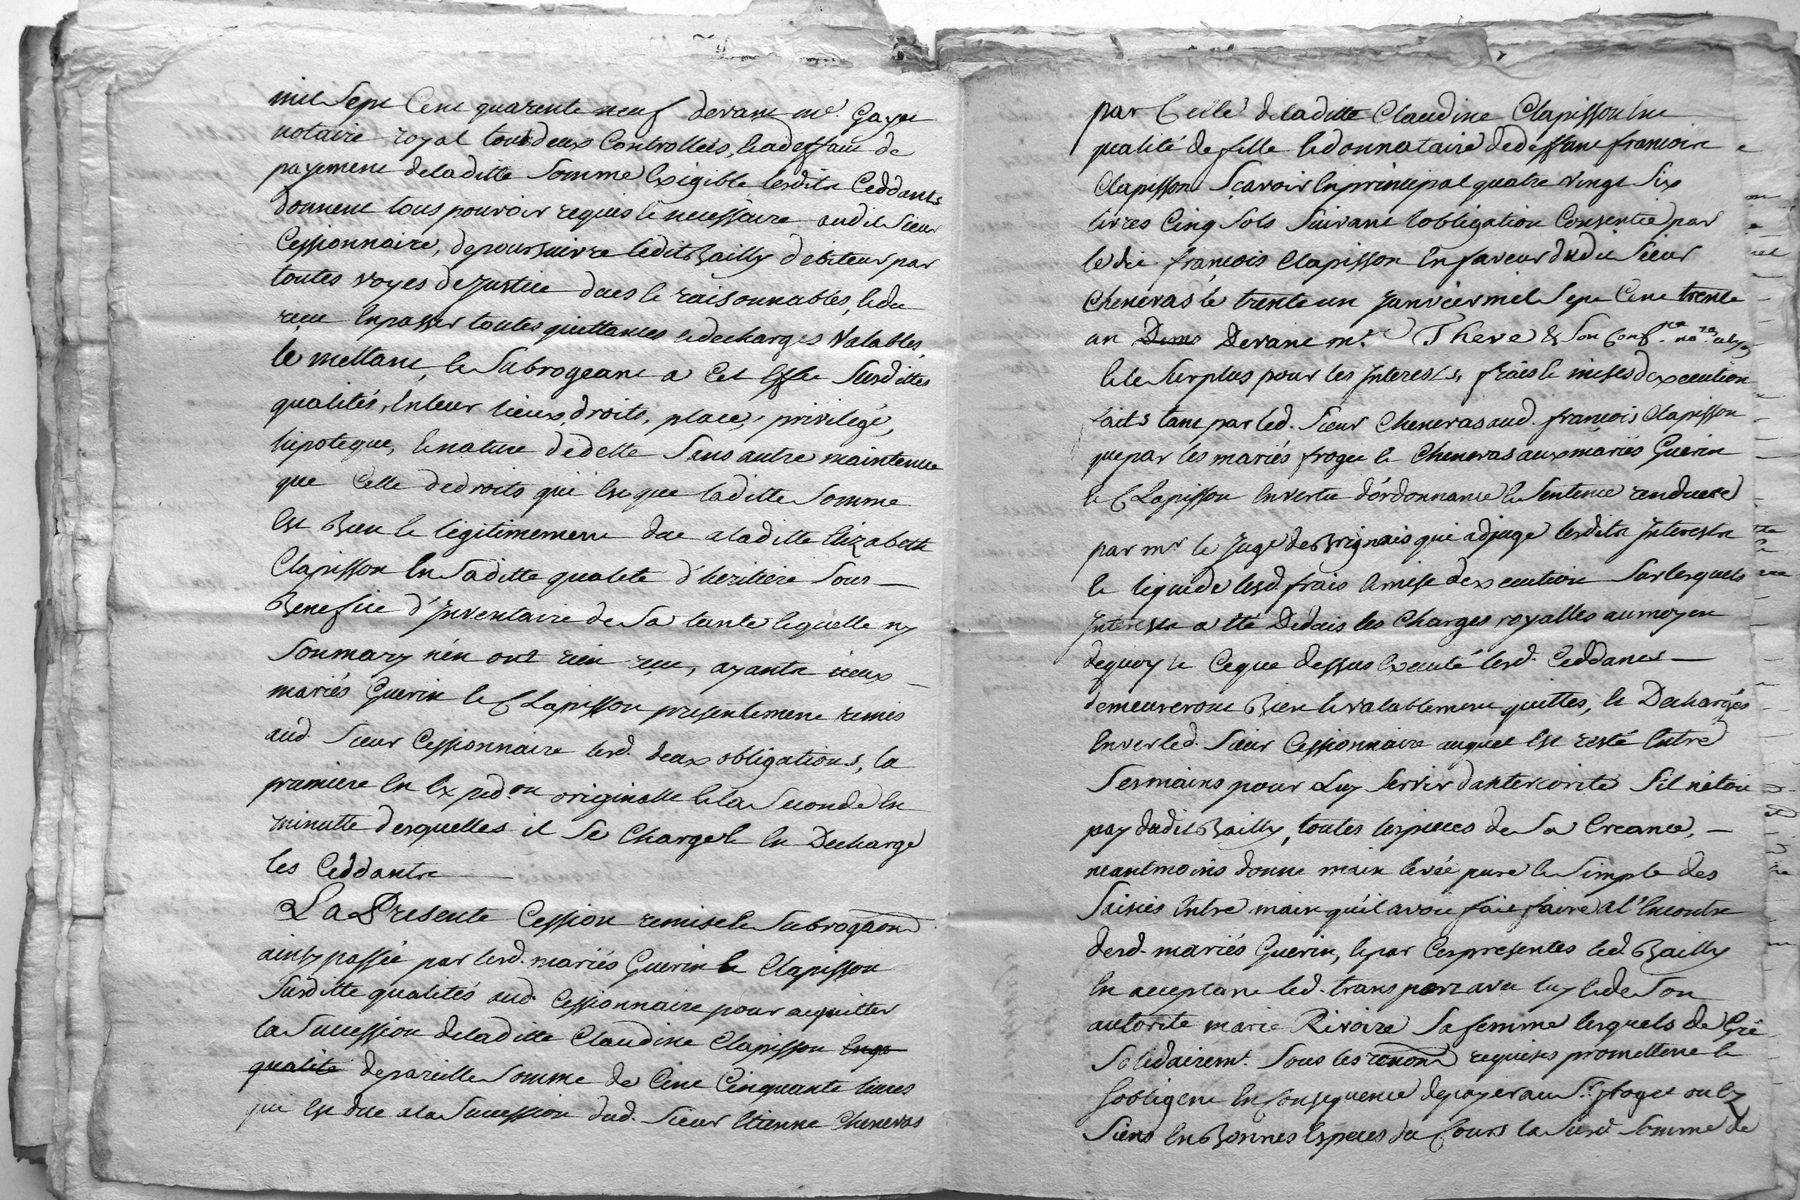 mil sept Cent quarente neuf devant me. Gayet
notaire royal tous deux Controllés, & a deffaut de
payement de laditte Somme Exigible lesdits Ceddants
donnent tous pouvoir requis & necessaire audit Sieur
Cessionnaire, de poursuivre ledit Bailly débiteur par
toutes voyes de justice dues & raisonnables, & du
reçu En passer toutes quittances & decharges Valables,
le mettant, & Subrogeant a Cet Effet Susdittes
qualités, En leur lieux, droits, place, privilége,
hipoteque, & nature de dette Sans autre maintenue
que Celle de droits qui Est que laditte Somme
Est Bien & légitimement due a laditte Elizabeth
Clapisson En Saditte qualité d'heritiere Sous
Benefice d'Inventaire de Sa tante & quelle ny
Son mary n'en ont rien reçu, ayants iceux
mariés Guerin & Clapisson presentement remis
aud. Sieur Cessionnaire lesd. deux obligations, la
premiere En Expedon originalle & la Seconde En
minutte desquelles il Se Charge & En Decharge
les Ceddants
La Presente Cession remise & Subrogaon
ainsy passée par lesd. mariés Guerin & Clapisson
Susditte qualités aud. Cessionnaire pour acquitter
la Succession de laditte Claudine Clapisson
qualité de pareille Somme de Cent Cinquante livres
qui Est due a la Succession dud. Sieur Etienne Cheneras
par Celle de laditte Claudine Clapisson En
qualité de fille & donnataire de deffunt francois
Clapisson Sçavoir En principal quatre vingt Six
livres Cinq Sols Suivant l'obligation Consentie par
ledit françois Clapisson En faveur dudit Sieur
Cheneras le trente un Janvier mil Sept Cent trente
un Devant me. Theve & Son Conf.
& le Surplus pour les Interests, frais & mises d'execution
faits tant par led. Sieur Cheneras aud. francois Clapisson
que par les mariés froget & Cheneras aux mariés Guerin
& Clapisson En vertu d'ordonnance & Sentence rendues
par mr. le Juge de Brignais qui adjuge lesdits Interests
& liquide lesd. frais & mise d'execution Sur lesquels
Interests a été Déduis les Charges royalles au moyen
de quoy & Ce que dessus Executé lesd. Ceddants
demeureront Bien & valablement quittes, & Dechargés
Envers led. Sieur Cessionnaire auquel Est resté Entre
Ses mains pour Luy Servir d'anteriorité S'il n'étoit
pay dudit Bailly, toutes les pieces de Sa Creance,
neantmoins donne main levée pure & Simple des
Saisies Entre main qu'il avoit fait faire a l'Encontre
desd. mariés Guerin, & par Ces presentes led. Bailly
En acceptant led. transport avec luy & de Son
autorité marie Rivoire Sa femme lesquels de Gré
Solidairemt. Sous les renons requises promettent &
Sobligent En Consequence de payer au Sr. froget ou Es
Siens En Bonnes Especes du Cours la Susd. Somme de